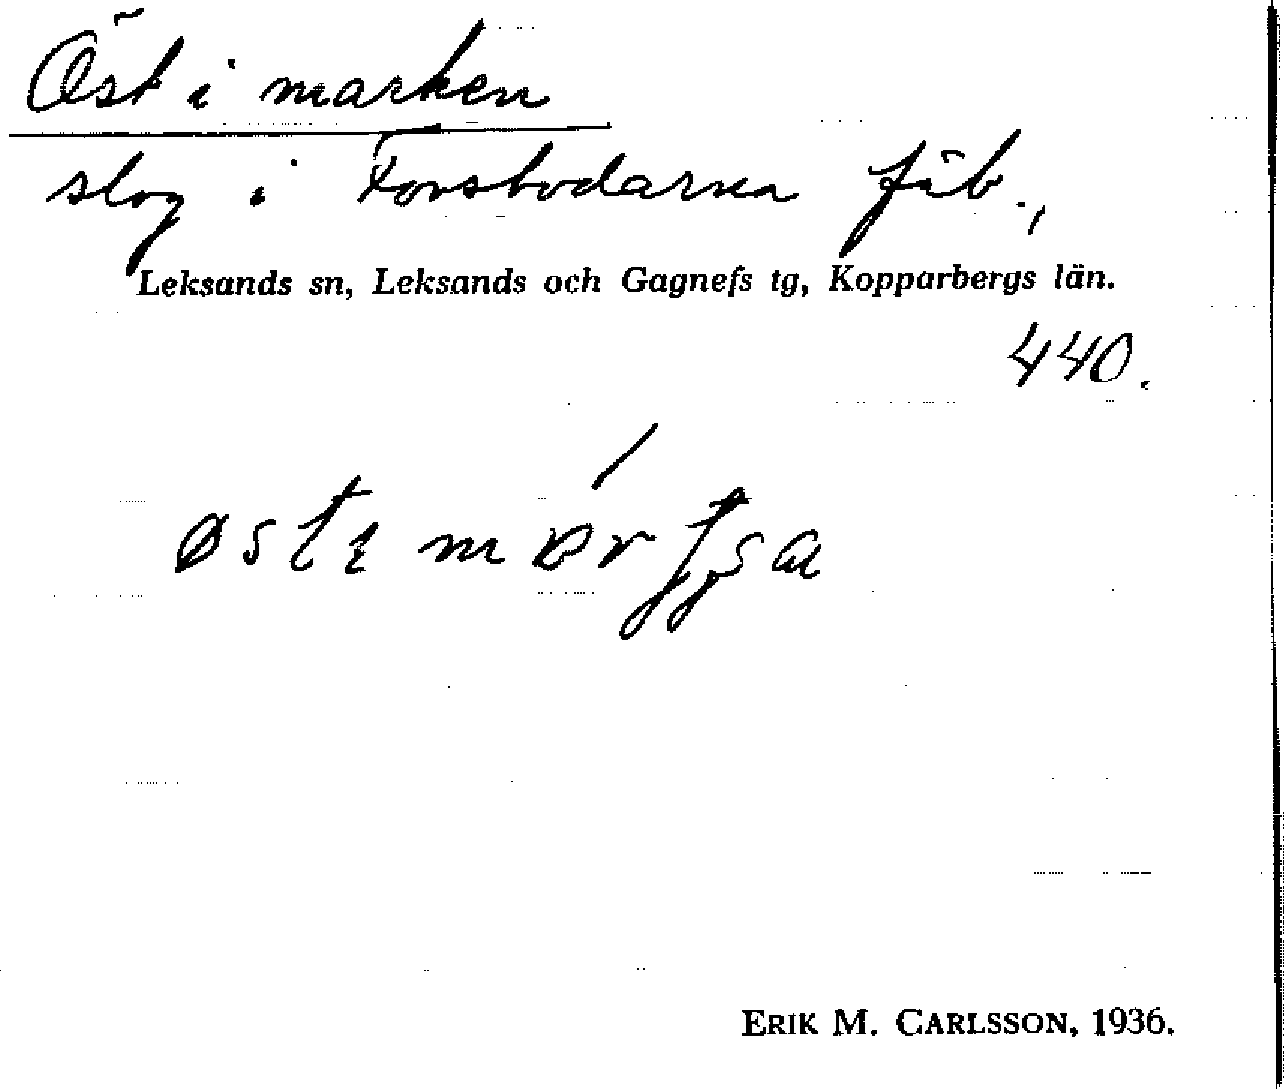 Öst i marken
slog i Forsbodarna fäb.,
Leksands sn, Leksands och Gagnefs tg, Kopparbergs län.
440.
ERIK M. CARLSSON, 1936.